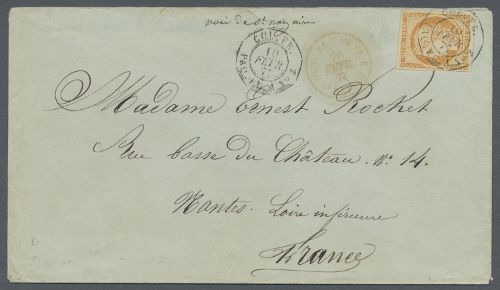 voie de St nazaire
10
FEVR.
Madame Ernest Rochet
Rue basse du Château. No 14.
Nantes. Loire inférieure
France